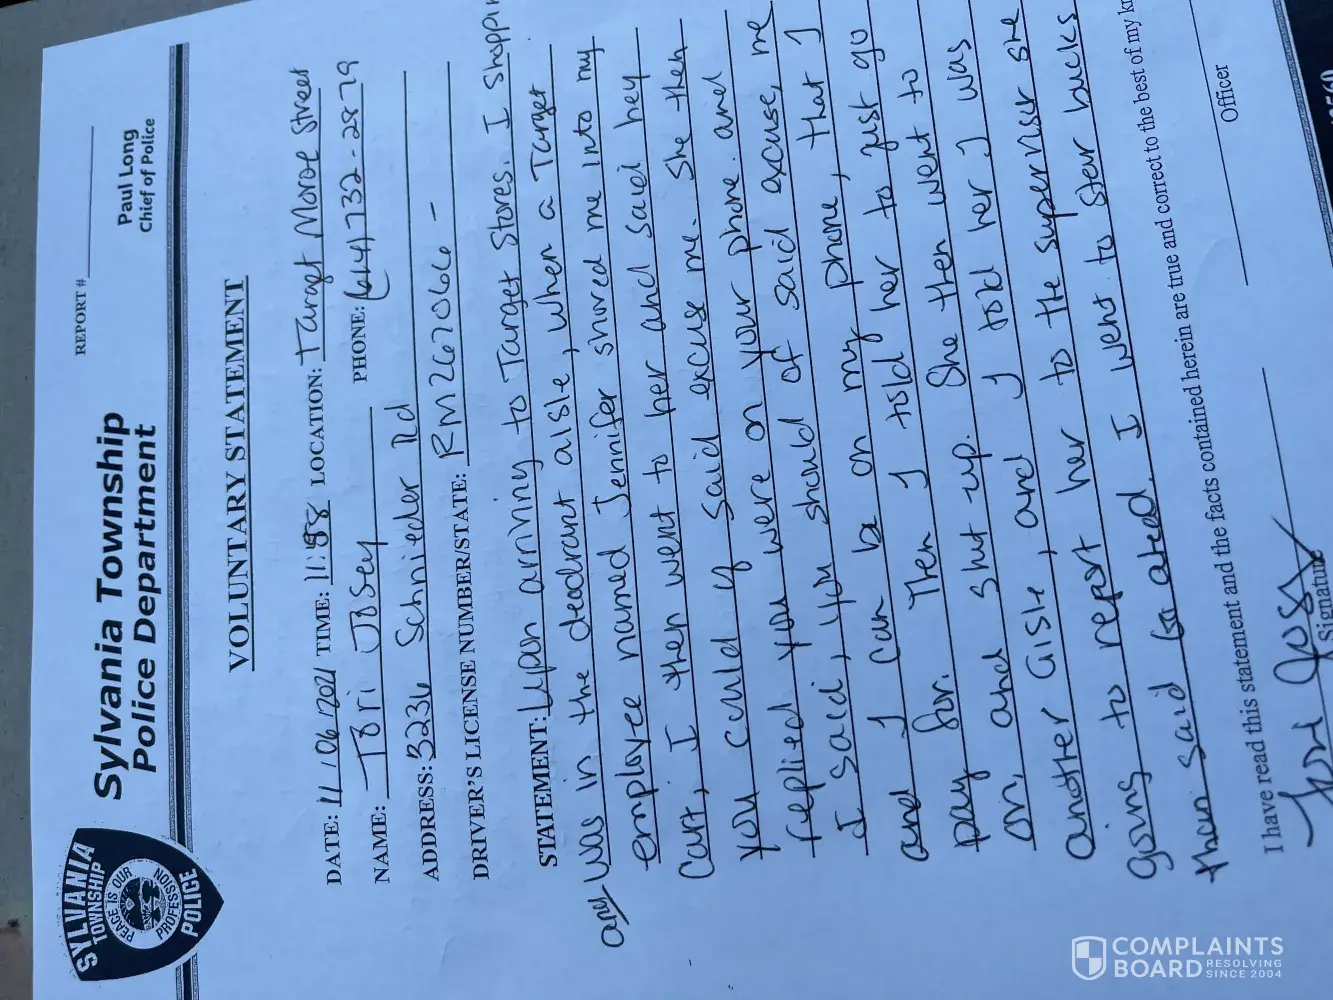 SYLVANIA
TOWNSHIP
PEACE IS OUR
PROFESSION
POLICE
Sylvania Township
Police Department
REPORT #
Paul Long
Chief of Police
VOLUNTARY STATEMENT
DATE: 11/06/2021 TIME: 11:58 LOCATION: Target Monroe Street
NAME: Tori Josey PHONE: 732-2879
ADDRESS: 3236 Schnieder Rd
DRIVER'S LICENSE NUMBER/STATE: RM267066 -
STATEMENT: Upon arriving to Target Stores. I Shoppin
and was in the deodrant aisle, when a Target
employee named Jennifer shoved me into my
Cart, I then went to her and said hey
you could of said excuse me. She then
replied you were on your phone. and
I said, you should of said excuse, me
and I can be on my phone, that I
pay for. Then I told her to just go
on, and shut up. She then went to
another aisle, and I told her I was
going to report her to the supervisor she
then said go ahead. I went to star bucks
I have read this statement and the facts contained herein are true and correct to the best of my kn
Tori Josey
Signature
Officer
COMPLAINTS
BOARD RESOLVING
SINCE 2004